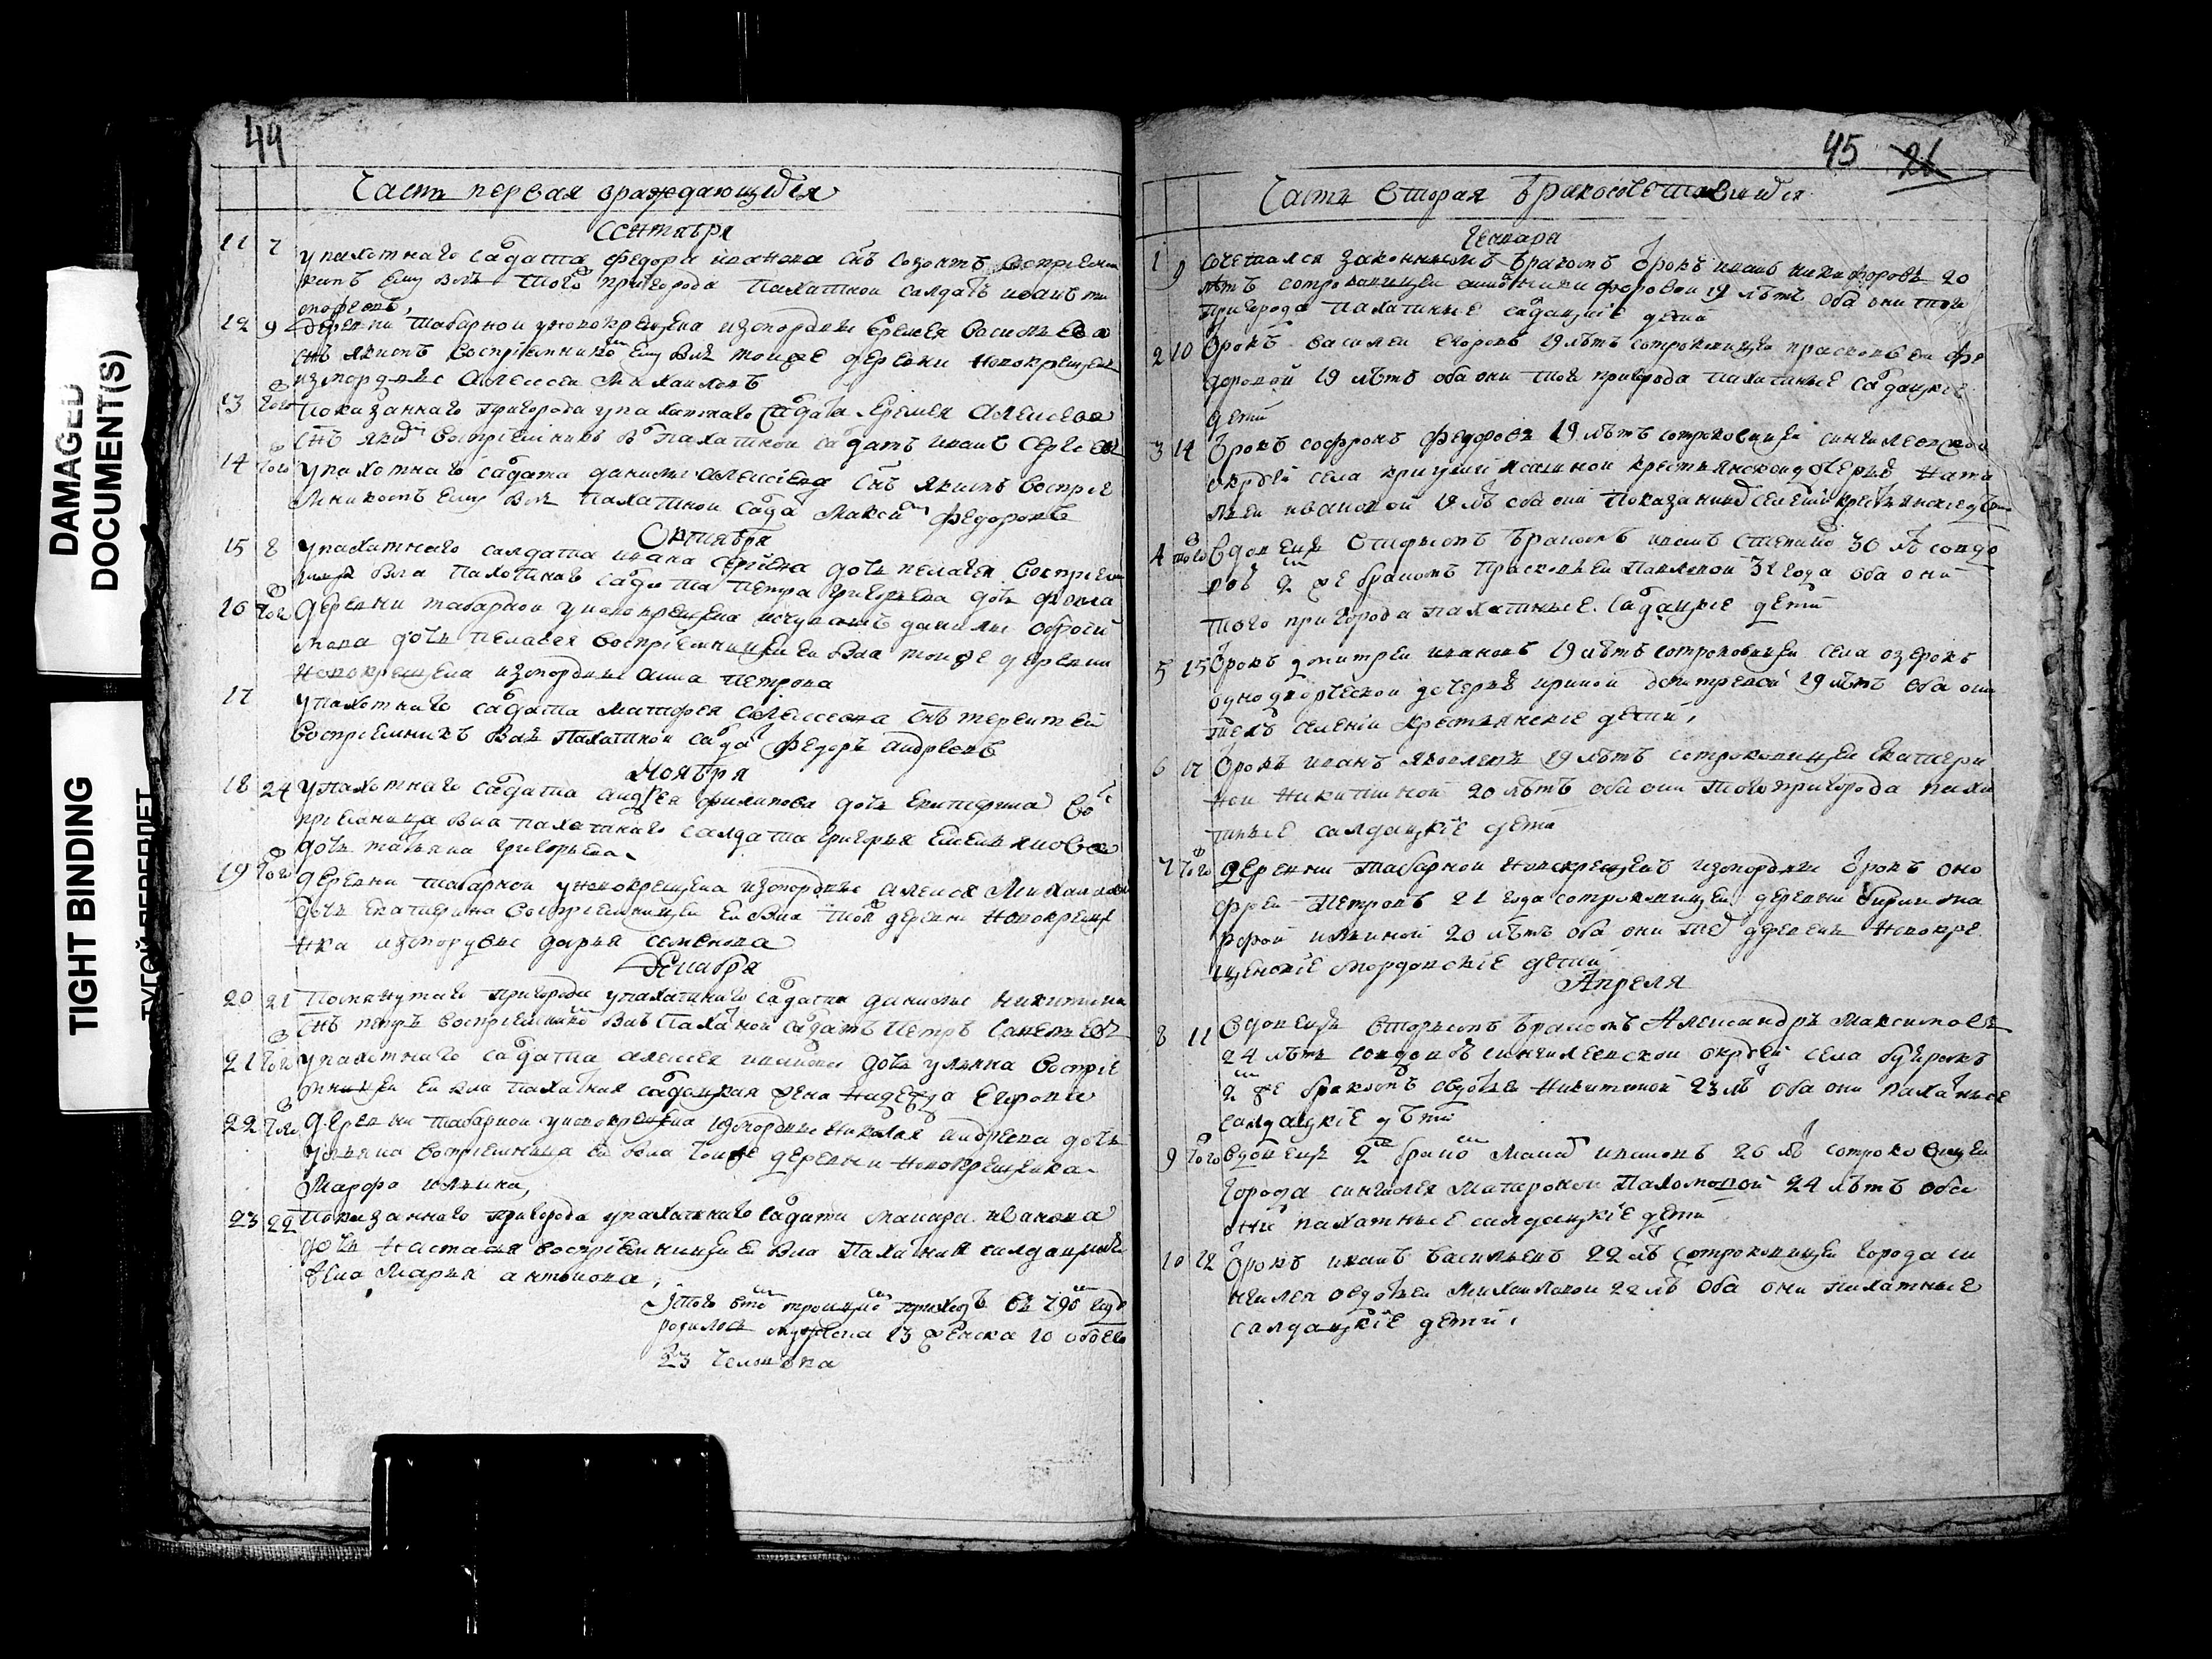 44
Часть первая ораждающихся
Сентября
11 7 у пахотнаго салдата Федора иванова снъ Созонтъ восприем
никъ ему былъ того пригорода Пахатной салдатъ иванъ ти
мофеевъ,
12 9 деревни табарной у новокрещена измордвы Еремея Василева
снъ якимъ восприемникомъ ему былъ тоя же деревни новокрещенъ
измордвы Алексеи Михаиловъ
13 того Показаннаго пригорода у пахатнаго салдата Еремея Алексеева
снъ яким восприемникъ бы пахатной салдатъ иванъ Сергеевъ
14 того у пахотнаго салдата данилы алексеева снъ якимъ восприе
мникомъ ему былъ пахатной салда Максим Федоровъ
Октября
15 8 у пахатнаго салдата ивана Сергеева дочь пелагея восприем
ница была пахотнаго салдата Петра Григорьева дочь Фекла
16 того деревни табарной у новокрещена данилы
дочь пелагея восприемницеи еи была тоя же деревни
новокрещена измордвы анна Петрова
17 у пахотнаго салдата Матфея Алексеева снъ терентеи
восприемникъ былъ пахатной салда Федоръ андреевъ
Ноября
18 24 у пахотнаго салдата андрея филипова дочь Екатерина вос
приемница была пахатнаго салдата григорья Емельянова
дочь татьяна григорьева
19 того деревни табарной у новокрещена измордвы алексея Михаилова
дочь екатерина восприемницеи еи была той деревни новокреще
нка измордвы дарья семенова
Декабря
20 21 Помянутаго пригорода у пахатнаго салдата данилы никитина
снъ петръ восприемникомъ былъ Пахатной салдатъ Петръ Савельевъ
21 того у пахотнаго салдата алексея иванова дочь ульяна восприе
мницеи еи была пахатная салдацкая жена надежда Егорова
22 того деревни табарной у новокрещена измордвы николая андреева дочь
ульяна восприемница еи была тоя же деревни новокрещенка
Марфа ильина,
23 29 Показаннаго пригорода у пахатнаго салдата Макара иванова
дочь настасья восприемницеи еи была Пахатная салдацкая
жена Марья антонова,
Итого в том троицкомъ приходе въ 790 году
родилось мужеска 13 женска 10 обоего
23 человека
45 26
Часть вторая бракосочетавшихся
Генваря
1 9 Сочетался законнымъ бракомъ отрокъ иванъ никифоровъ 20
летъ сотроковицеи федоровой 19 летъ оба они той
пригорода пахатные салдацкие дети
2 10 Отрокъ василеи егоровъ 19 летъ сотроковицею прасковьеи фе
доровой 19 летъ оба они тоя пригорода пахатные салдацкие
дети
3 14 Отрокъ софронъ Федоровъ 19 летъ сотроковицеи сингилеевской
округи села крестьянской дочерью ната
льеи ивановой 19 ле оба они показанныхъ селении крестьянские дети
4 того вдовецъ вторымъ бракомъ иванъ Степанов 36 ле совдо
вой 2м же бракомъ Прасковьеи Павловой 31 года оба они
того пригорода пахатные салдацкие дети
5 15 Отрокъ дмитреи ивановъ 19 летъ сотроковицеи села озерокъ
однодворческой дочерью ириной дмитревой 19 летъ оба они
техъ селении крестьянские дети,
6 17 Отрокъ иванъ яковлевъ 19 летъ сотроковицеи Екатери
нои никитиной 20 летъ оба они того пригорода паха
тные салдацкие дети
7 того деревни табарной новокрещенъ измордвы отрокъ оно
фреи Петровъ 21 года сотроковицеи деревни
ильиной 20 летъ оба они тех деревень новокре
щенские мордовские дети
Апреля
8 11 вдовецъ вторымъ бракомъ Александръ Максимовъ
24 летъ совдовою сингилеевской округи села бутырокъ
2м же бракомъ авдотьеи никитиной 23 ле оба они пахатные
салдацкие дети
9 того вдовецъ 2м брако ивановъ 26 ле сотроковицеи
города сингилея Матроной Пахомовой 24 летъ оба
они пахатные салдацкие дети
10 12 Отрокъ иванъ васильевъ 22 ле сотроковицеи города си
нгилея авдотьеи Михаиловой 22 ле оба они пахатные
салдацкие дети,
DAMAGED
DOCUMENT(S)
TIGHT BINDING
ТУГОЙ ПЕРЕПЛЕТ